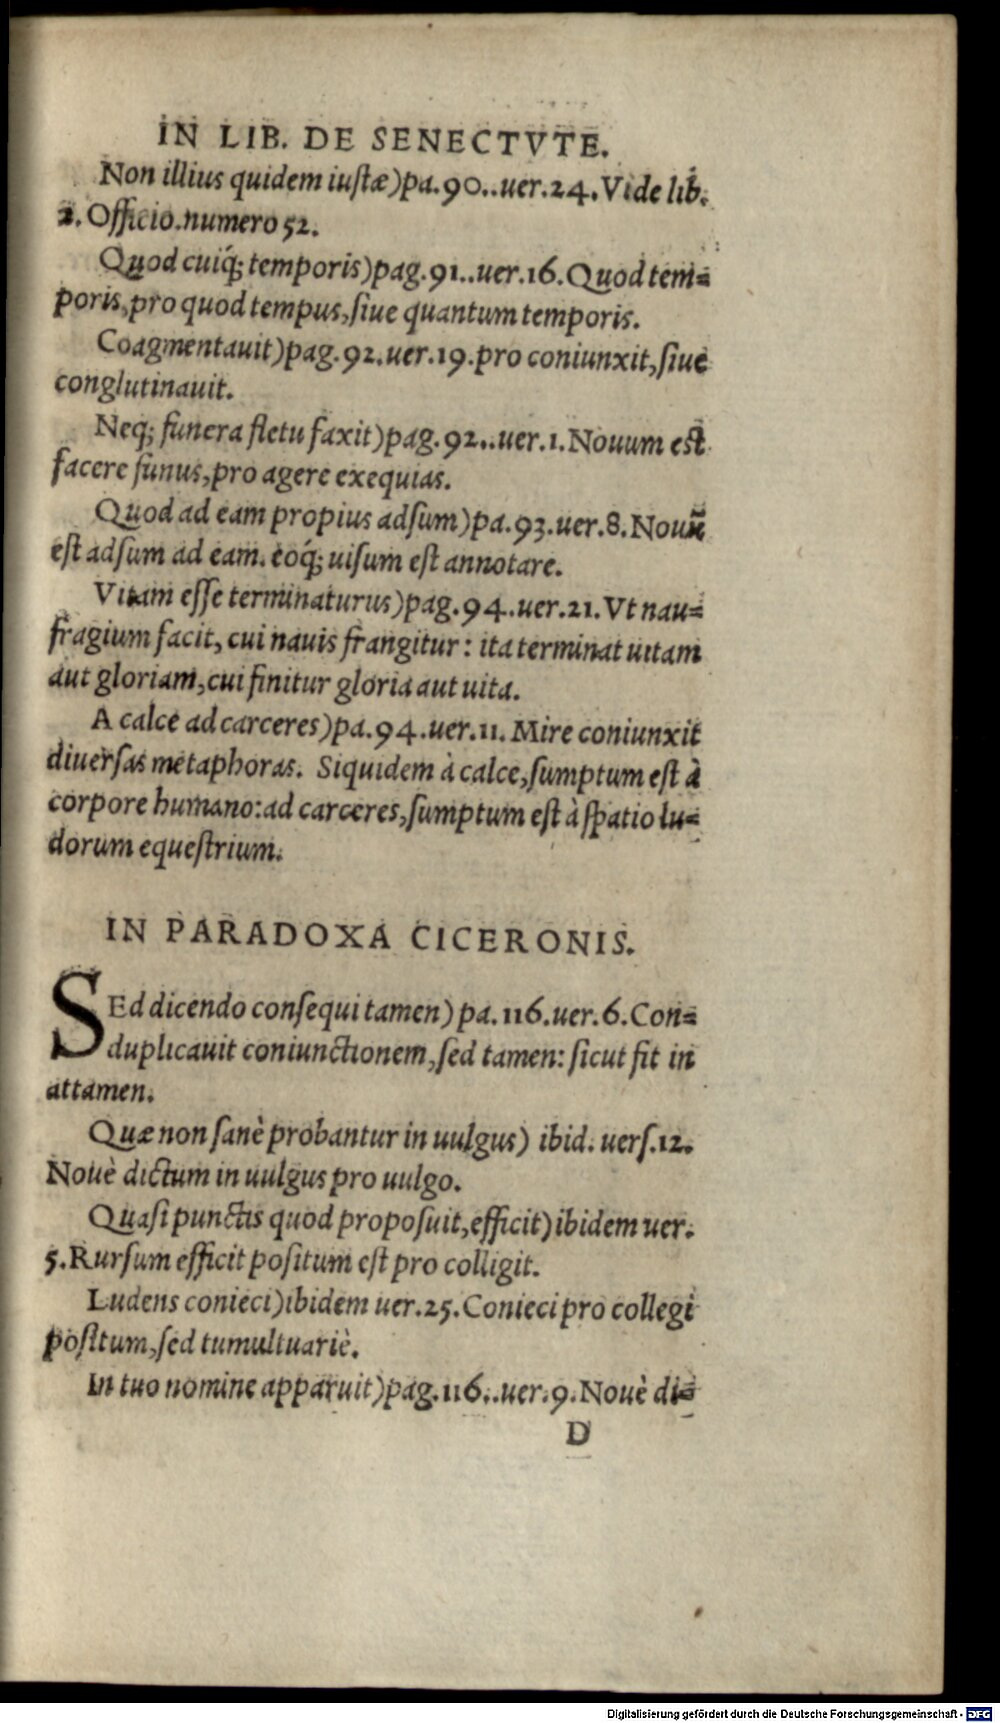 IN LIB. DE SENECTVTE.
Non illius quidem iustæ)pa.90..uer.24.Vide lib.
2. Officio.numero 52.
Quod cuiq́; temporis)pag.91..uer.16.Quod tem=
poris,pro quod tempus,siue quantum temporis.
Coagmentauit)pag.92.uer.19.pro coniunxit,siue
conglutinauit.
Neq; funera fletu faxit)pag.92..uer.1.Nouum est
facere funus,pro agere exequias.
Quod ad eam propius adsum)pa.93.uer.8.Nouũ
est adsum ad eam. eoq́; uisum est annotare.
Vitam esse terminaturus)pag.94.uer.21.Vt nau=
fragium facit, cui nauis frangitur: ita terminat uitam
aut gloriam,cui finitur gloria aut uita.
A calce ad carceres)pa.94.uer.11.Mire coniunxit
diuersas metaphoras. Siquidem à calce,sumptum est à
corpore humano:ad carceres,sumptum est à spatio lu=
dorum equestrium.
IN PARADOXA CICERONIS.
SEd dicendo consequi tamen)pa.116.uer.6.Con=
duplicauit coniunctionem,sed tamen: sicut fit in
attamen.
Quæ non sanè probantur in uulgus) ibid. uers.12.
Nouè dictum in uulgus pro uulgo.
Quasi punctis quod proposuit,efficit)ibidem uer.
5.Rursum efficit positum est pro colligit.
Ludens conieci)ibidem uer.25.Conieci pro collegi
positum,sed tumultuariè.
In tuo nomine apparuit)pag.116..uer.9.Nouè di=
D
Digitalisierung gefördert durch die Deutsche Forschungsgemeinschaft - DFG